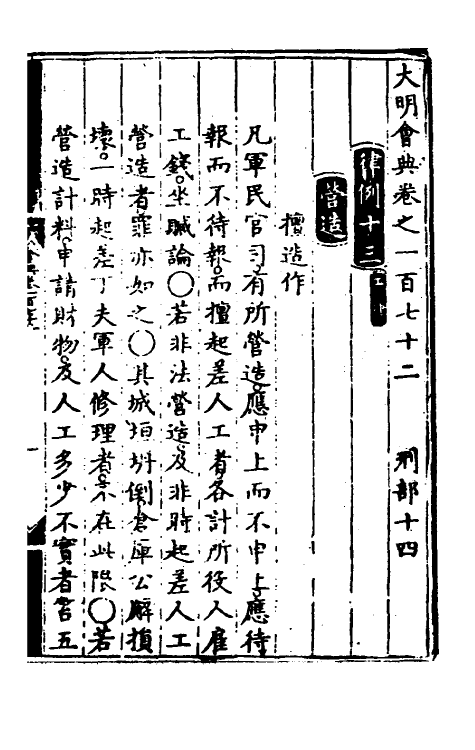 大明會典卷之一百七十二 刑部十四
律例十三 工律
營造
擅造作
凡軍民官司有所營造應申上而不申上應待
報而不待報而擅起差人工者各計所役人雇
工錢坐贓論○若非法營造及非時起差人工
營造者罪亦如之○其城垣坍倒倉庫公廨損
壞一時起差丁夫軍人修理者不在此限○若
營造計料申請財物及人工多少不實者笞五